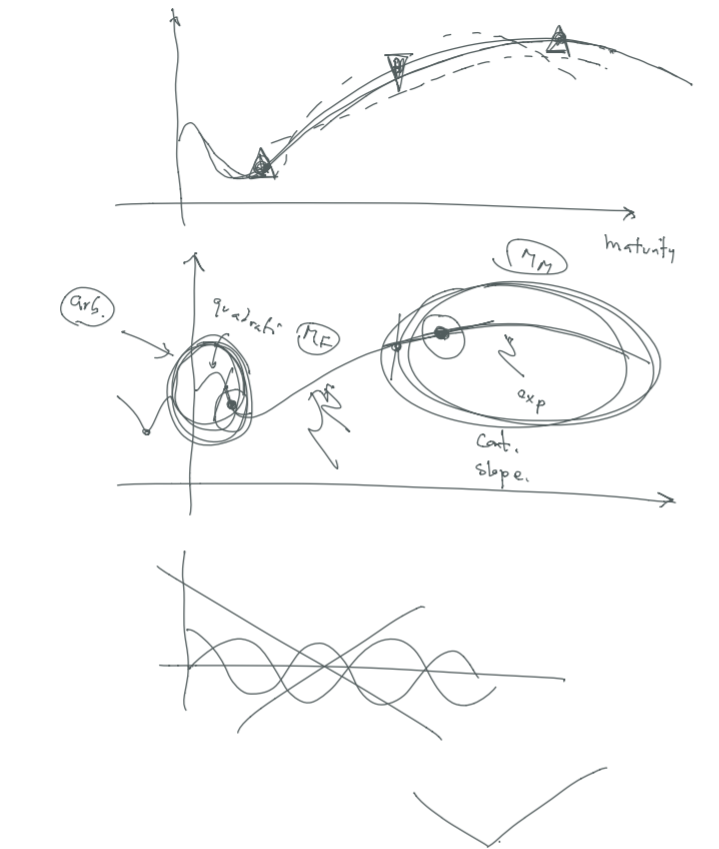 maturity
MM
arb.
quadrati
MF
exp
Cont.
slope.